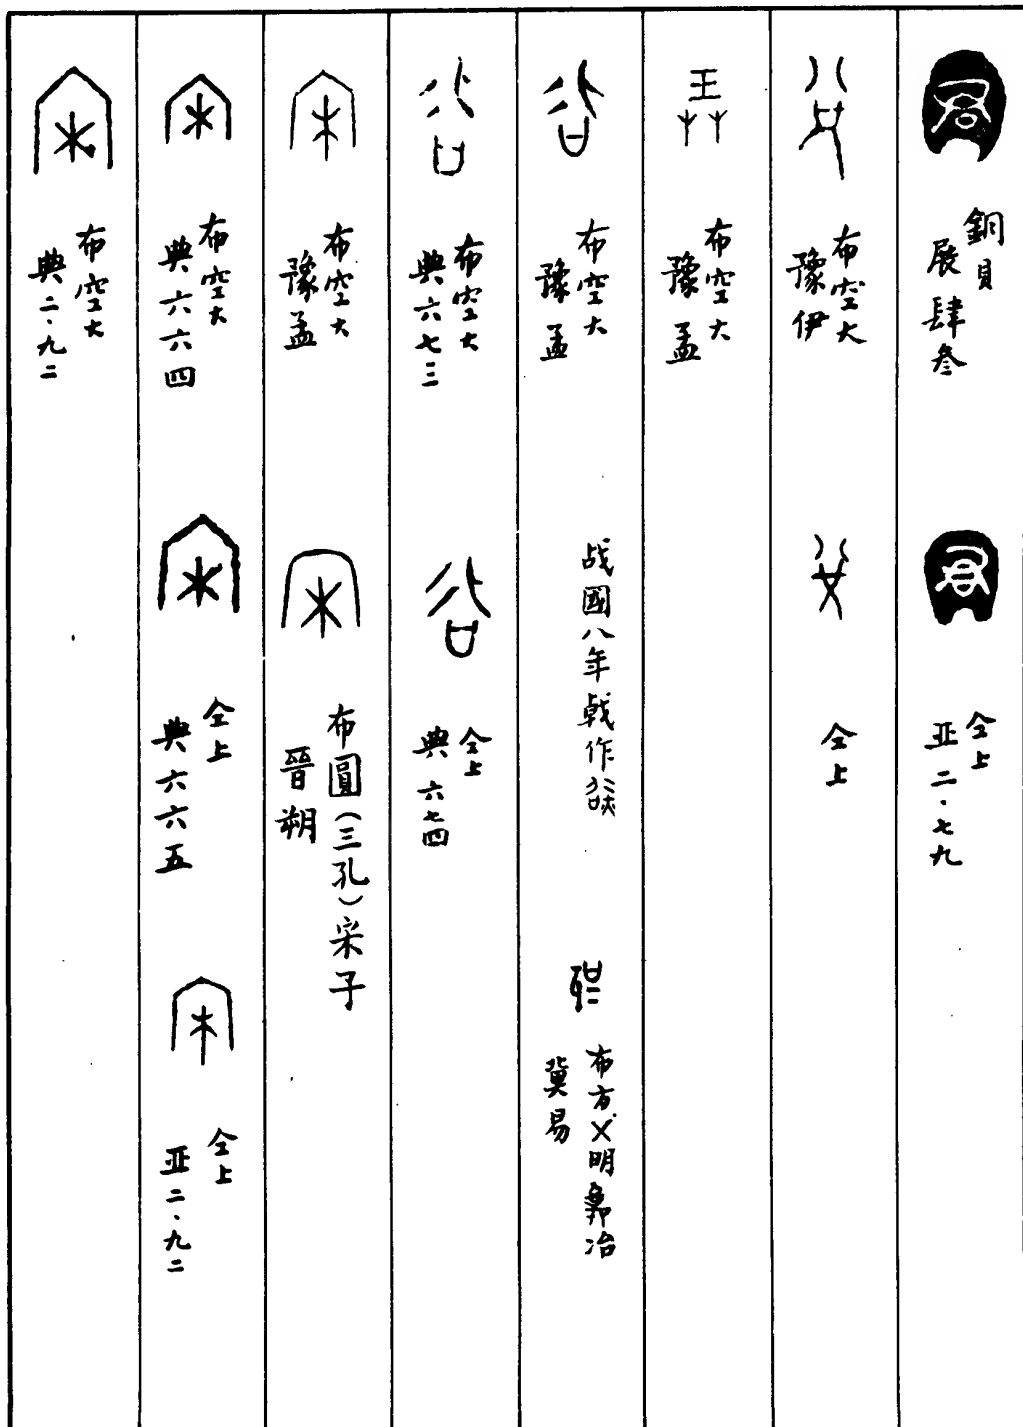 銅貝
展肆叁
仝上
亚二·七九
布空大
豫伊
仝上
布空大
豫孟
布空大
豫孟
战國八年戟作
布方
明
冶
冀易
布空大
典六七三
仝上
典六七四
布空大
豫孟
布圓(三孔)宋子
晉朔
布空大
典六六四
仝上
典六六五
仝上
亚二·九二
布空大
典二·九二